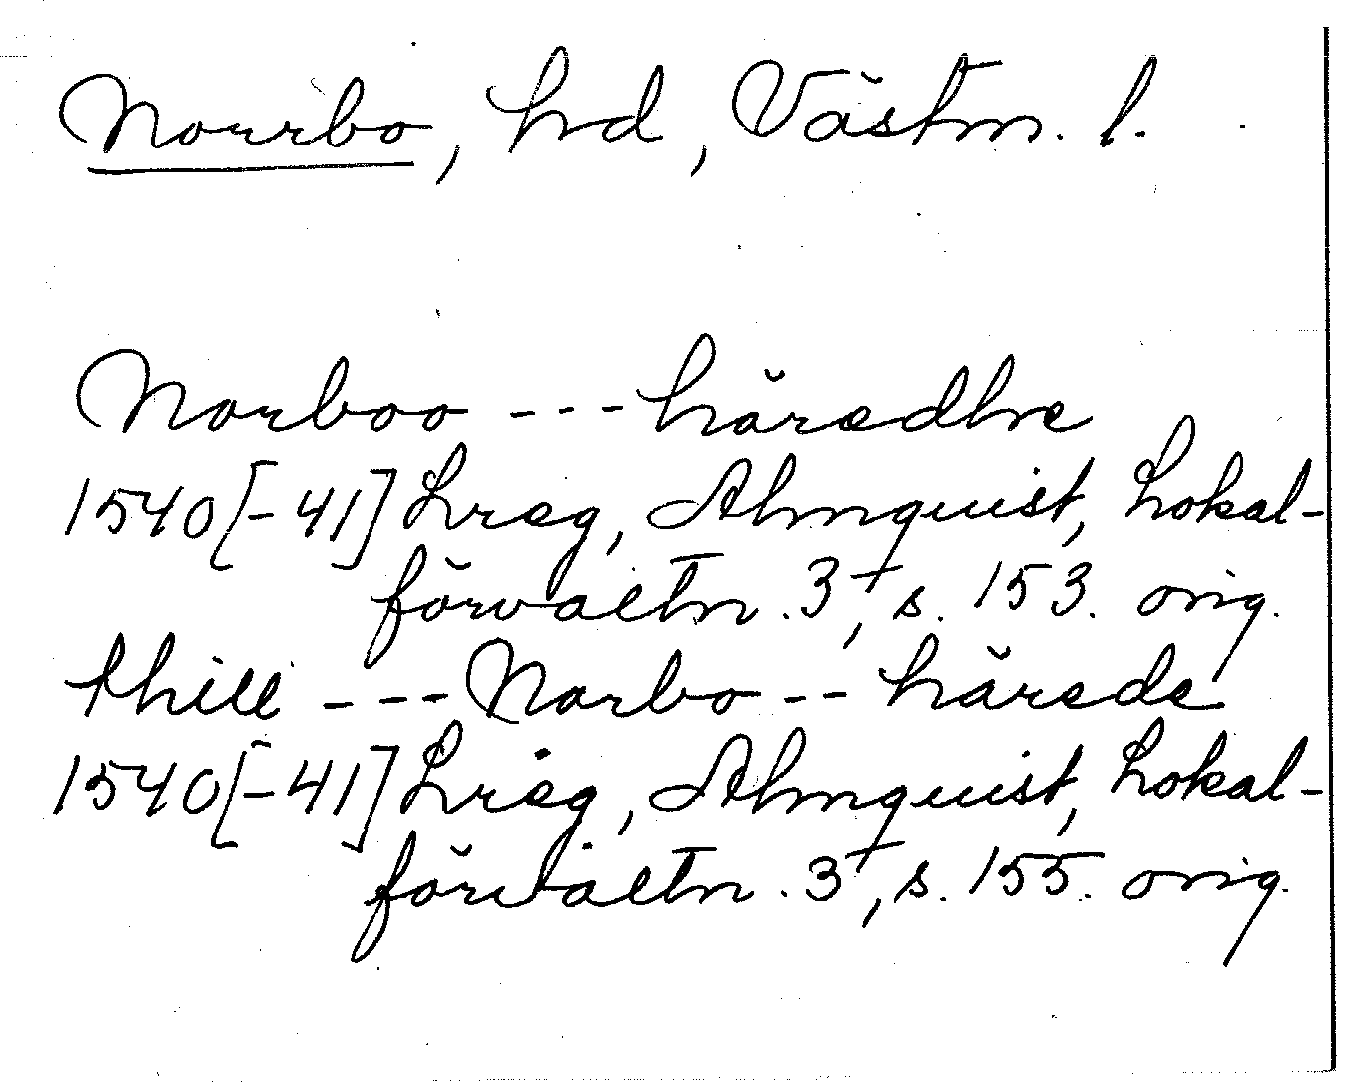 Norrbo, hd, Västm. l.
Norboo --- häredhe
1540[-41] Lreg, Almquist, Lokal-
förvaltn. 3⁺, s. 153. orig.
thill --- Norbo -- härede
1540[-41] Lreg, Almquist, Lokal-
förvaltn. 3⁺, s. 155. orig.